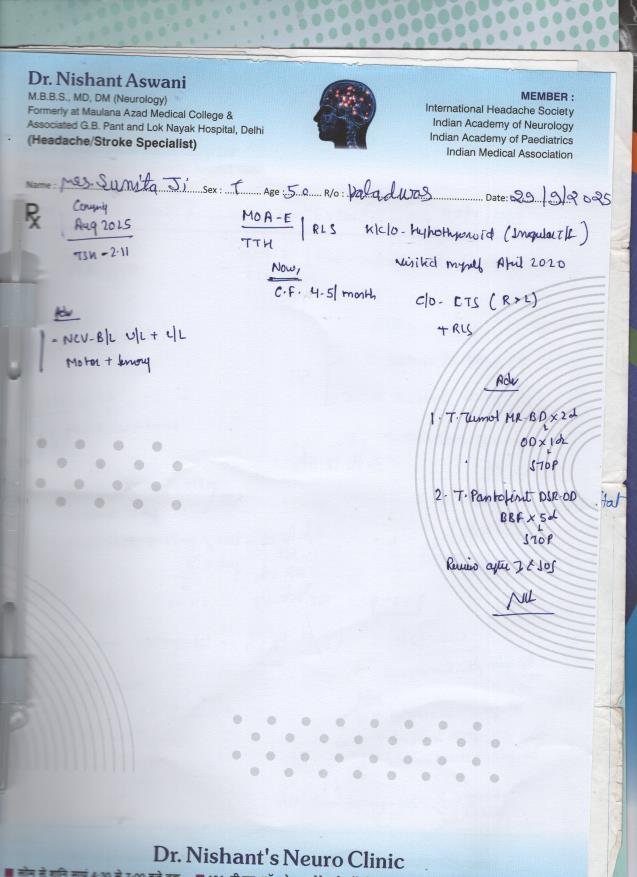 Dr. Nishant Aswani
M.B.B.S., MD, DM (Neurology)
Formerly at Maulana Azad Medical College &
Associated G.B. Pant and Lok Nayak Hospital, Delhi
(Headache/Stroke Specialist)
MEMBER :
International Headache Society
Indian Academy of Neurology
Indian Academy of Paediatrics
Indian Medical Association
Name : Mrs. Sunita Ji Sex : F Age : 50 R/o : Date: 29/9/2025
Rx
Aug 2025
TSH - 2.11
MOA-E
TTH
RLS
K/C/O - Hypothyroid
visited myself April 2020
Now,
C.F. 4-5/month
C/O - CTS (R>L)
+ RLS
Adv
- NCV - B/L U/L + L/L
Motor + Sensory
Adv
1. T. MR-BD x 2d
OD x 1d
STOP
2. T. DSR-OD
BBF x 5d
STOP
Review after
Dr. Nishant's Neuro Clinic